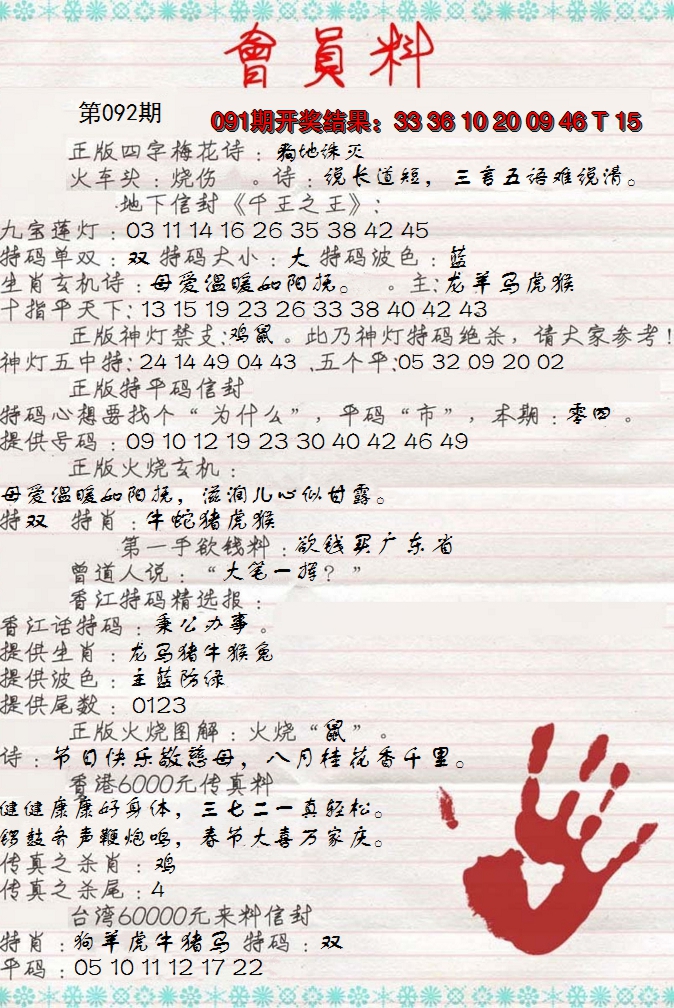 會員料
第092期
091期开奖结果：33 36 10 20 09 46 T 15
正版四字梅花诗：狗地诛灭
火车头：烧伤 。诗：说长道短，三言五语难说清。
地下信封《千王之王》：
九宝莲灯：03 11 14 16 26 35 38 42 45
特码单双：双 特码大小：大 特码波色：蓝
生肖玄机诗：母爱温暖如阳抚。 。主：龙羊马虎猴
十指平天下：13 15 19 23 26 33 38 40 42 43
正版神灯禁支：鸡鼠。此乃神灯特码绝杀，请大家参考！
神灯五中特：24 14 49 04 43 .五个平：05 32 09 20 02
正版特平码信封
特码心想要找个“为什么”，平码“市”，本期：零四。
提供号码：09 10 12 19 23 30 40 42 46 49
正版火烧玄机：
母爱温暖如阳抚，滋润儿心似甘露。
特双 特肖：牛蛇猪虎猴
第一手欲钱料：欲钱买广东省
曾道人说：“大笔一挥？”
香江特码精选报：
香江话特码：秉公办事。
提供生肖：龙马猪牛猴兔
提供波色：主蓝防绿
提供尾数：0123
正版火烧图解：火烧“鼠”。
诗：节日快乐敬慈母，八月桂花香千里。
香港6000元传真料
健健康康好身体，三七二一真轻松。
锣鼓齐声鞭炮鸣，春节大喜万家庆。
传真之杀肖：鸡
传真之杀尾：4
台湾60000元来料信封
特肖：狗羊虎牛猪马 特码：双
平码：05 10 11 12 17 22